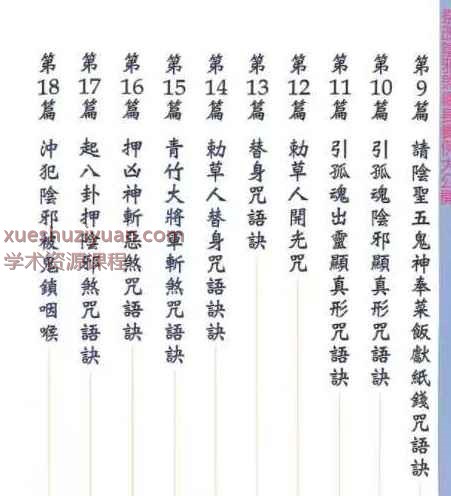 第9篇 請陰聖五鬼神奉菜飯獻紙錢咒語訣
第10篇 引孤魂陰邪顯真形咒語訣
第11篇 引孤魂出靈顯真形咒語訣
第12篇 勅草人開光咒
第13篇 替身咒語訣
第14篇 勅草人替身咒語訣訣
第15篇 青竹大將軍斬煞咒語訣
第16篇 押凶神斬惡煞咒語訣
第17篇 起八卦押陰邪煞咒語訣
第18篇 沖犯陰邪被鬼鎖咽喉
xueshuziyuan.com
学术资源课程